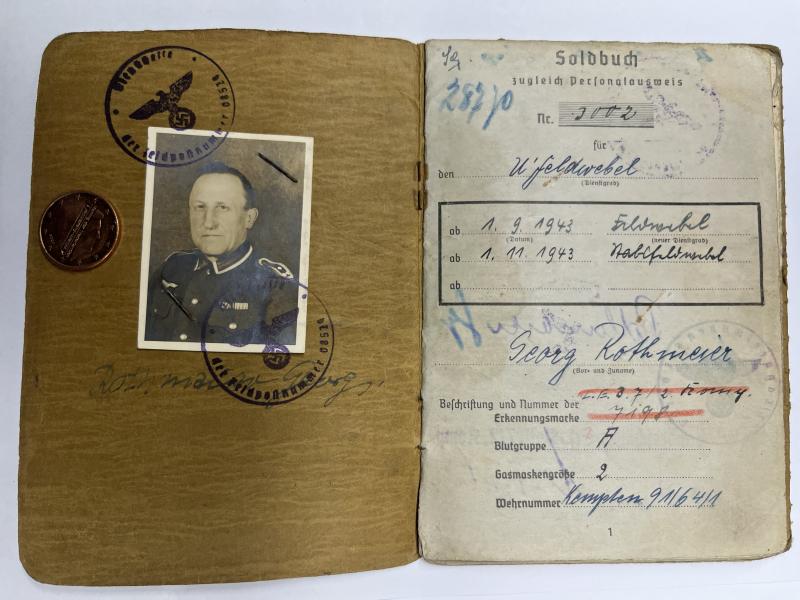 Dienststelle
der Feldpostnummer 08524
der Feldpostnummer 08524
Rothmeier Georg
Soldbuch
zugleich Personalausweis
Nr. 3002
für
den U'feldwebel
(Dienstgrad)
ab 1. 9. 1943 Feldwebel
(Datum) (neuer Dienstgrad)
ab 1. 11. 1943 Stabsfeldwebel
ab
Georg Rothmeier
(Vor- und Zuname)
Beschriftung und Nummer der
Erkennungsmarke
Blutgruppe A
Gasmaskengröße 2
Wehrnummer Kempten 91/64/1
1